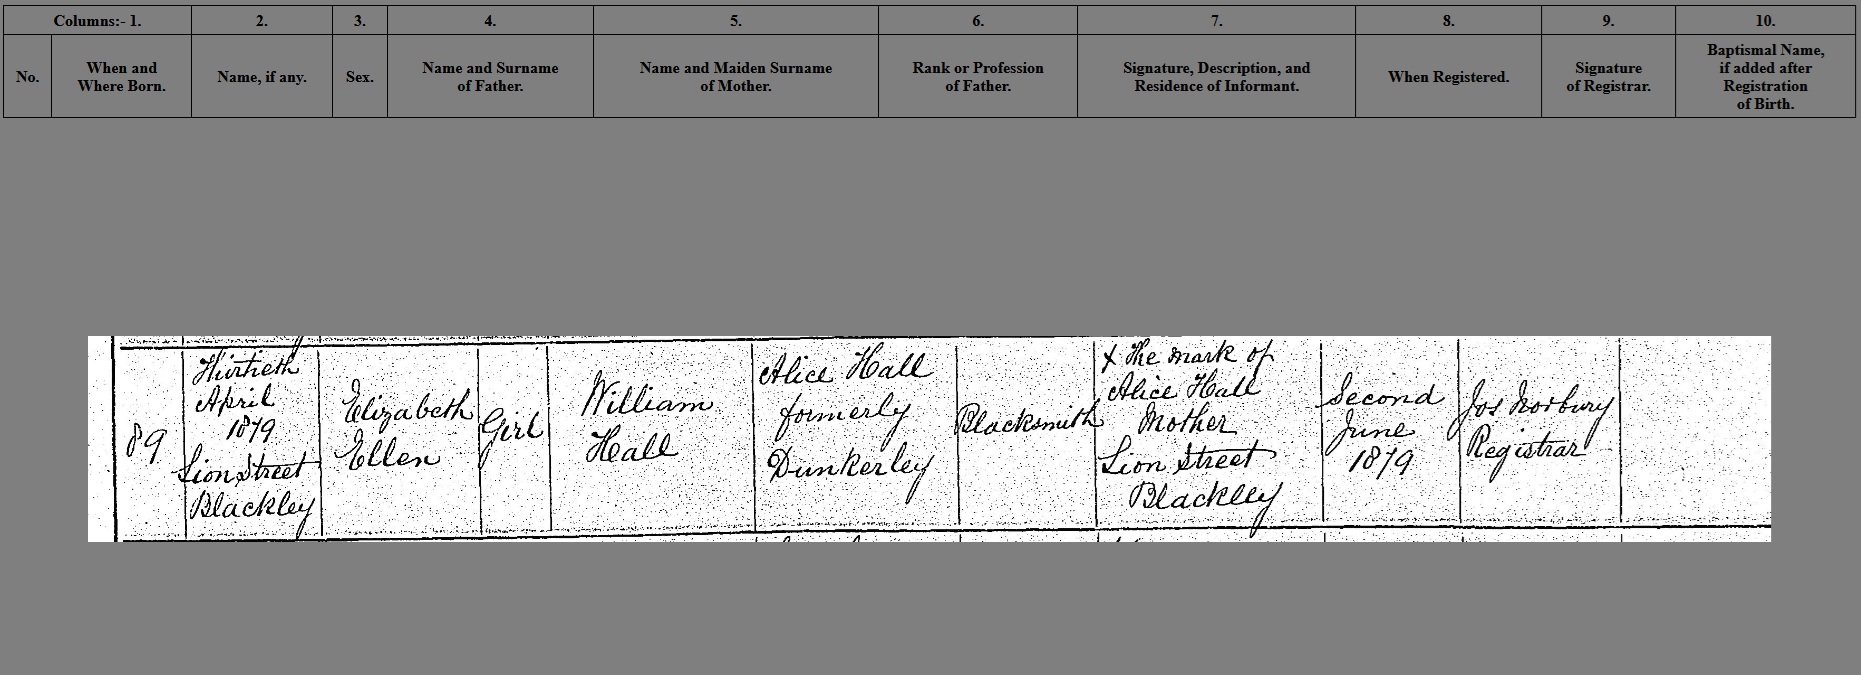 Columns:- 1.
2.
3.
4.
5.
6.
7.
8.
9.
10.
No.
When and
Where Born.
Name, if any.
Sex.
Name and Surname
of Father.
Name and Maiden Surname
of Mother.
Rank or Profession
of Father.
Signature, Description, and
Residence of Informant.
When Registered.
Signature
of Registrar.
Baptismal Name,
if added after
Registration
of Birth.
89
Thirtieth
April
1879
Lion Street
Blackley
Elizabeth
Ellen
Girl
William
Hall
Alice Hall
formerly
Dunkerley
Blacksmith
X The mark of
Alice Hall
Mother
Lion Street
Blackley
Second
June
1879
Jos Norbury
Registrar